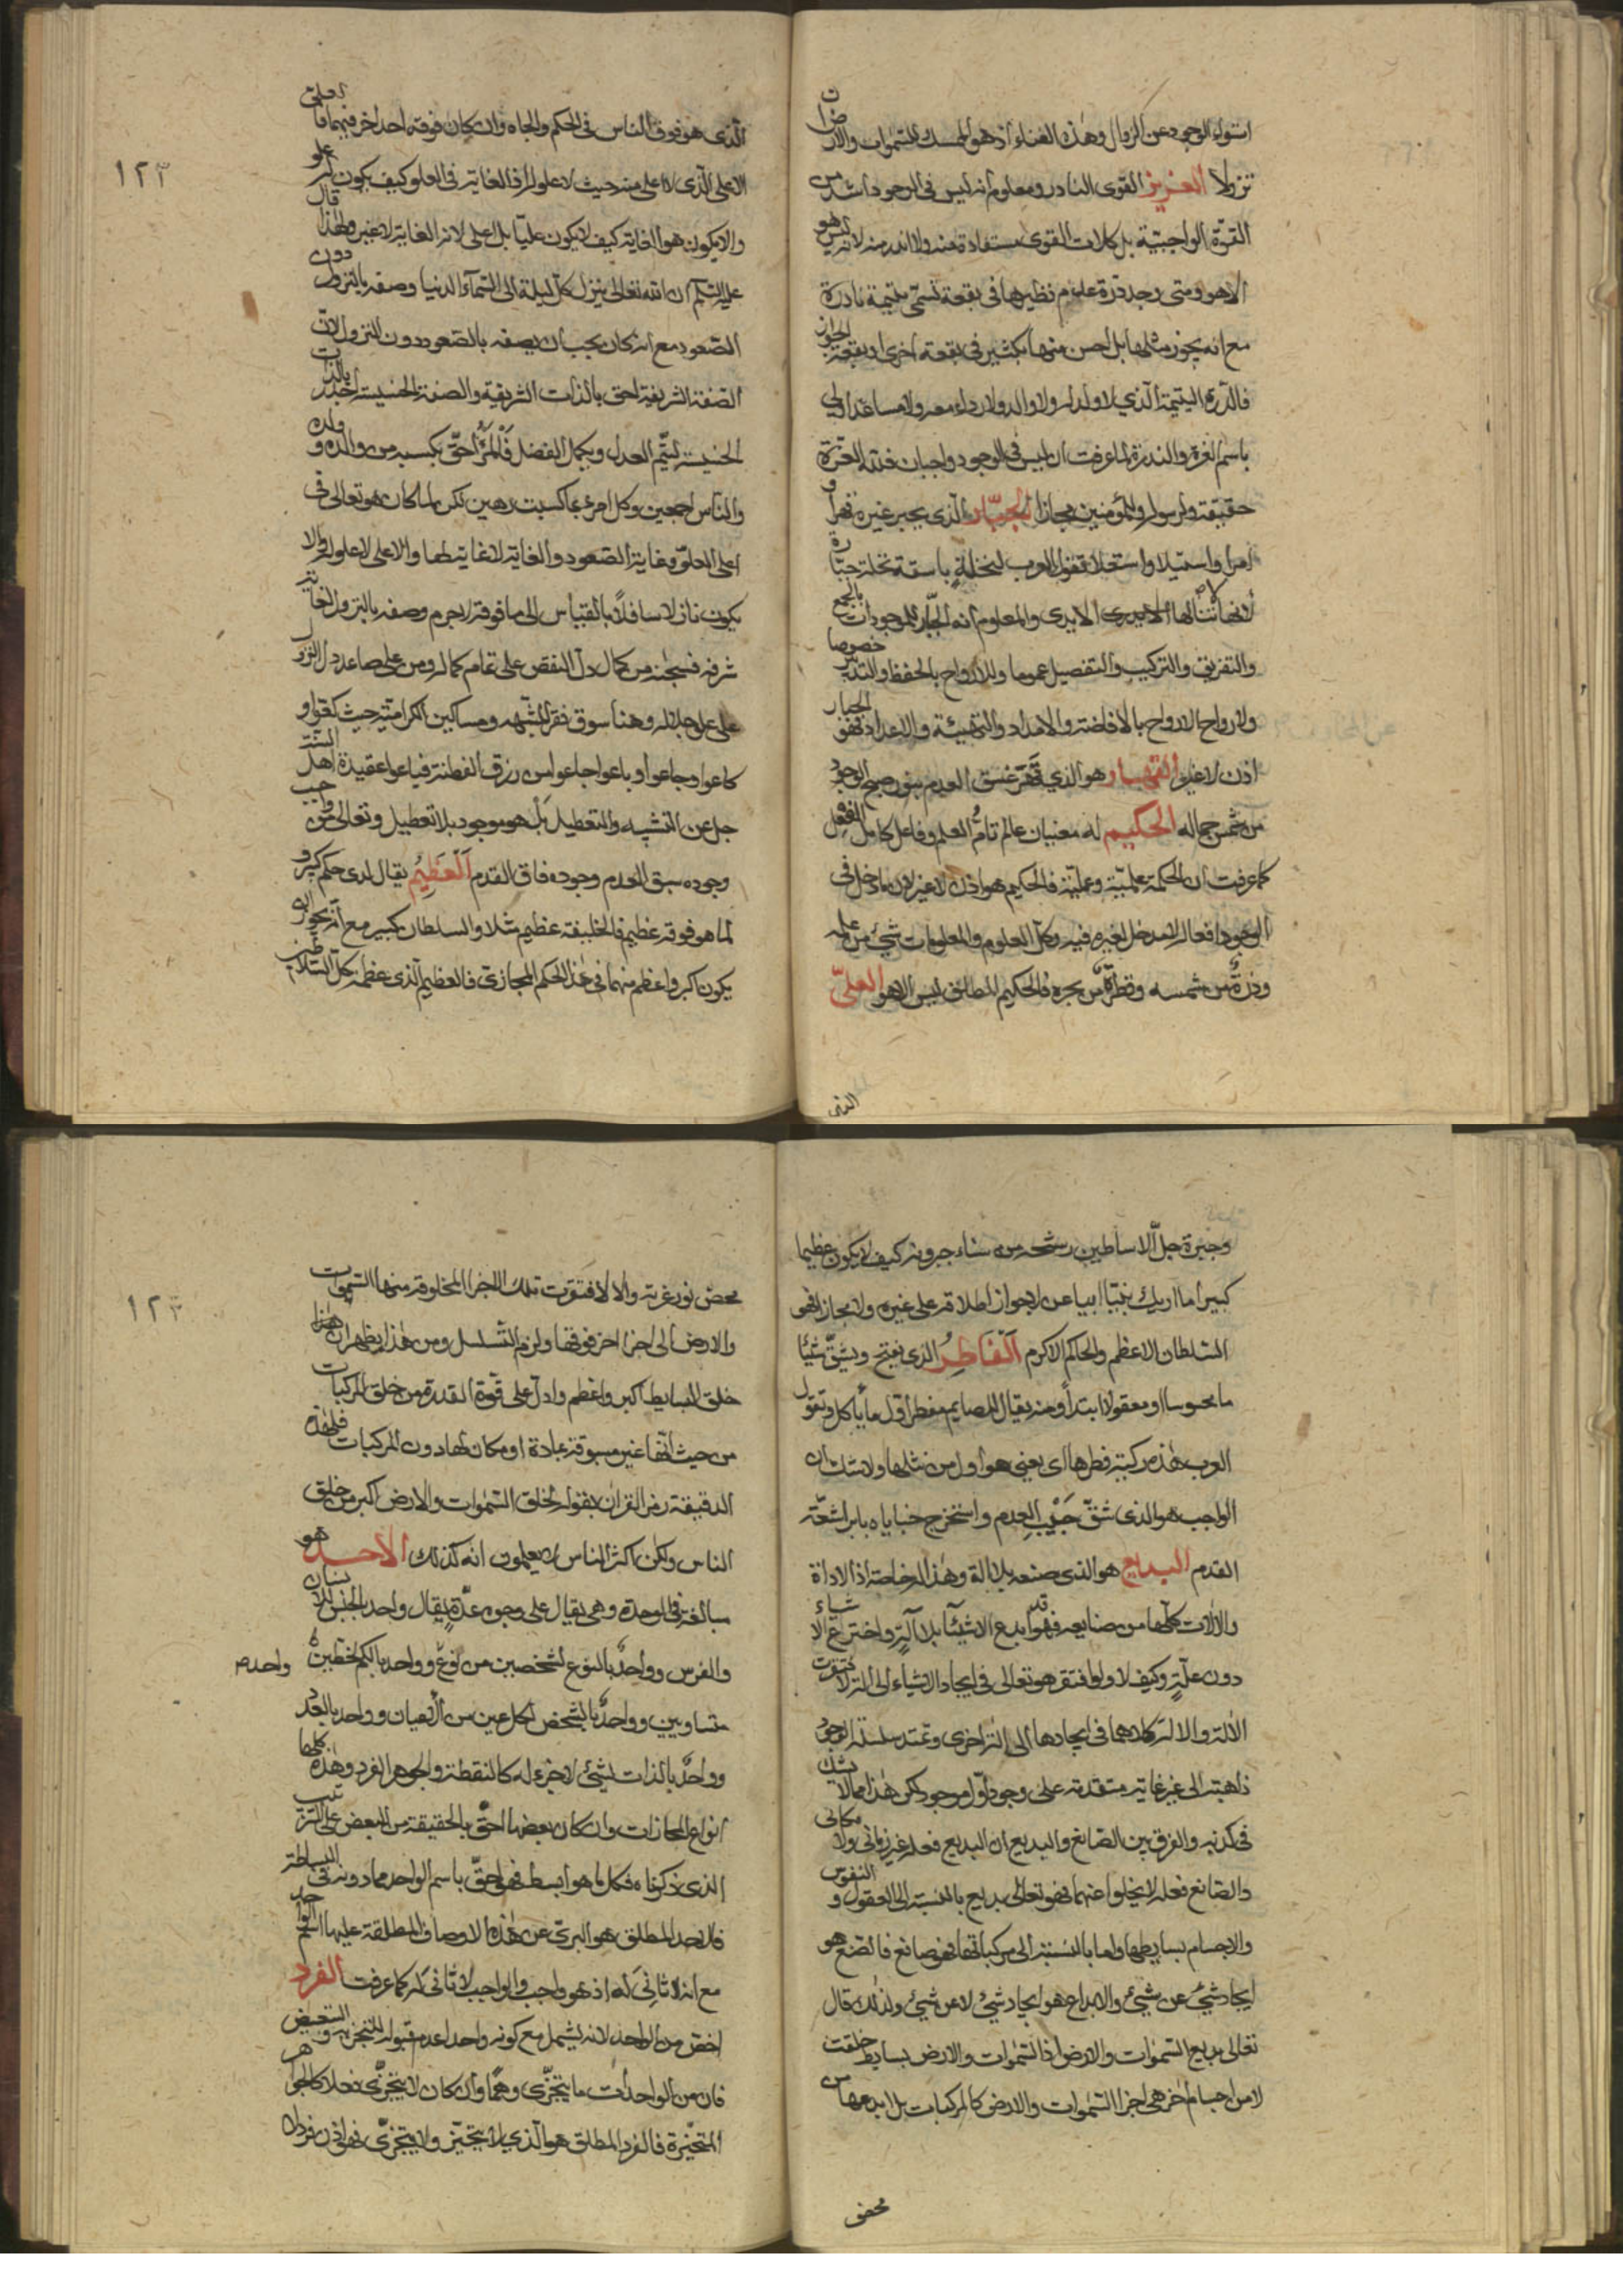 استواء الوجود عن الزوال وهذه الغناء اذ هو الممسك للسموات والارض ان
تزولا العزيز القوى النادر ومعلوم انه ليس فى الموجودات اشد من
القوة الواجبية بل كلات القوى مستفادة منه ولا اندر منه لانه ليس هو
الا هو ومتى وجد درة عدم نظيرها فى بقعة تسمى يتيمة نادرة
مع انه يجوز مثلها بل احسن منها بكثير فى بقعة اخرى او بقعة الجواز
فالدرة اليتيمة الذي لا ولد له ولا والد ولا رداء معه ولا مساعد اولى
باسم العزة والندرة لما عرفت ان ليس فى الوجود واجبان فلله العزة
حقيقة ولرسوله وللمؤمنين مجازا الجبار الذى يجبر غيره قهرا و
امرا واستيلا واستعلا تقول العرب لنخلة باسقة نخلة جبارة
لانها لا تنالها الايدى والمعلوم انه الجبار للموجودات بالجمع
والتفريق والتركيب والتفصيل عموما وللارواح بالحفظ والتدبير خصوصا
ولارواح الارواح بالافاضة والامداد والتهيئة والاعداد فهو الجبار
اذن لا غير القهار هو الذي قهر غسق العدم بنور صبح الوجود
من شمس جماله الحكيم له معنيان عالم تام العلم وفاعل كامل الفعل و
كما عرفت ان الحكمة علمية وعملية فالحكيم هو اذن لا غير لان ما دخل فى
الوجود افعاله لا مدخل لغيره فيه وكل العلوم والمعلومات شيء من علمه
وذرة من شمسه وقطرة من بحره فالحكيم المطلق ليس الا هو العلىّ
الذى
الذى هو فوق الناس فى الحكم والجاه وان كان فوقه احد اخر فيهما فالعلى
الاعلى الذى لا اعلى منه حيث لا علو له اذ الغاية فى العلو كيف يكون له علو
والا يكون هو الغاية كيف لا يكون عليّا بل اعلى لانه الغاية لا غير ولهذا قال
عليه السلم ان الله تعالى ينزل كل ليلة الى السماء الدنيا وصفه بالنزول دون
الصعود مع انه كان يجب ان يصفه بالصعود دون النزول لان
الصفة الشريفة احق بالذات الشريفة والصفة الخسيسة اجدر بالذات
الخسيسة ليتم العدل ويكمل الفضل فالمرء احق بكسبه من والده وولده
والناس اجمعين وكل امرئ بما كسبت رهين لكن لما كان هو تعالى فى
اعلى العلوّ وغاية الصعود والغاية لا غاية لها والاعلى لا علو له ولا
يكون نازلا سافلا بالقياس الى ما فوقه لاجرم وصفه بالنزول لغاية
شرفه فسبحانه من كمال دل النقص على تمام كماله ومن على صاعد دل النزول
على علو جلاله وهنا سوق فقر المشبهه ومساكين الكرامية حيث كقواو
كاعوا وجاعوا وباعوا جاعوا من رزق الفطنة فباعوا عقيدة اهل السنة
جل عن التشبيه والتعطيل بل هو موجود بلا تعطيل وتعالى من واجب
وجوده سبق العدم وجوده فاق القدم العظيم يقال لدى حكم كبير و
لما هو فوقه عظيم فالخليفة عظيم مثلا والسلطان كبير مع انه يجوز ان
يكون اكبر واعظم منهما فى هذا الحكم المجازى فالعظيم الذى عظمة كل السلاطين
١٢٢
وجبرة جل الاساطين رشحه من سناء جبروته كيف لا يكون عظيما
كبيرا اما اريك بنيانا ابيا عن لا جواز اطلاقه على غيره ولا مجازا فهو
السلطان الاعظم والحاكم الاكرم الفاطر الذى يفتح ويشق شيئا
ما محسوسا او معقولا ابتداء ومنه يقال للصايم مفطر اول ما ياكل وتقول
العرب هذه ركية فطرها اى يعنى هو اول من نثلها ولا شك ان
الواجب هو الذى شق جيب العدم واستخرج خباياه بابر اشعة
القدم البديع هو الذى صنعه بلا الة وهذا له خاصة اذ الاداة
والالات كلها من صنايعه فهو قد ابدع الاشياء بلا آلة واخترع الاشياء
دون علّة وكيف لا ولو افتقر هو تعالى فى ايجاد الاشياء الى الة لافتقرت
الالة والا لة كلاهما فى ايجادها الى الة اخرى وتمتد سلسلة الوجود
ذاهبة الى غير غاية متقدمة على وجود اول موجود لكن هذا مما لا شك
فى كذبه والفرق بين الصانع والبديع ان البديع فعله غير زمانى ولا مكانى
والصانع فعله لا يخلوا عنهما فهو تعالى بديع بالنسبة الى العقول و النفوس
والاجسام بسايطها واما بالنسبة الى مركباتها فهو صانع فالصنع هو
ايجاد شيئ عن شيئ والابداع هو ايجاد شيئ لا عن شيئ ولذلك قال
تعالى بديع السموات والارض اذ السموات والارض بسايط خلقت
لا من اجسام اخر هى اجزا السموات والارض كالمركبات بل ابدعها من
محض
محض نور عزته والا لافتقرت تلك الاجزا المخلوقة منها السموات
والارض الى اجزا اخر فوقها ولزم التسلسل ومن هذا يظهر ان هذا
خلق البسايط اكبر واعظم وادل على قوة القدرة من خلق المركبات
من حيث انها غير مسبوقة بمادة او مكان لها دون المركبات فلهذه
الدقيقة رمز القران بقوله لخلق السموات والارض اكبر من خلق
الناس ولكن اكثر الناس لا يعلمون انه كذلك الاحد هو
مبالغة فى الوحدة وهى يقال على وجوه عدة يقال واحد بالجنس للانسان
والفرس وواحد بالنوع لشخصين من نوع وواحد بالكم لخطين
واحده
متساويين وواحد بالشخص لكل عين من الاعيان وواحد بالعدد
وواحد بالذات لشيئ لا جزء له كالنقطة والجوهر الفرد وهذه كلها
انواع المجازات وان كان بعضها احق بالحقيقة من البعض على الترتيب
الذى ذكرناه فكل ما هو ابسط فهو احق باسم الواحد مما دونه فى البساطة
فالاحد المطلق هو البرى عن هذه الاوصاف المطلقة عليها اسم الواحد
مع انه لا ثانى له اذ هو واجب والواجب لا ثانى له كما عرفت الفرد
اخص من الواحد لانه يشمل مع كونه واحدا عدم قبوله للتجزية والتبعيض
فان من الواحدات ما يتجزى وهما وان كان لا يتجزى فعلا كالجواهر
المتحيزة فالفرد المطلق هو الذي لا يتحيز ولا يتجزى فهو اذن فردان
١٢٣